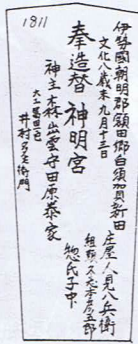 1811
伊勢國朝明郡額田郷白須賀新田
文化八歳未九月十三日
奉造替神明宮
神主森出雲守田原泰家
大工萱生邑
井村多左衛門
庄屋人見八兵衛
組頭久志本彦五郎
惣氏子中